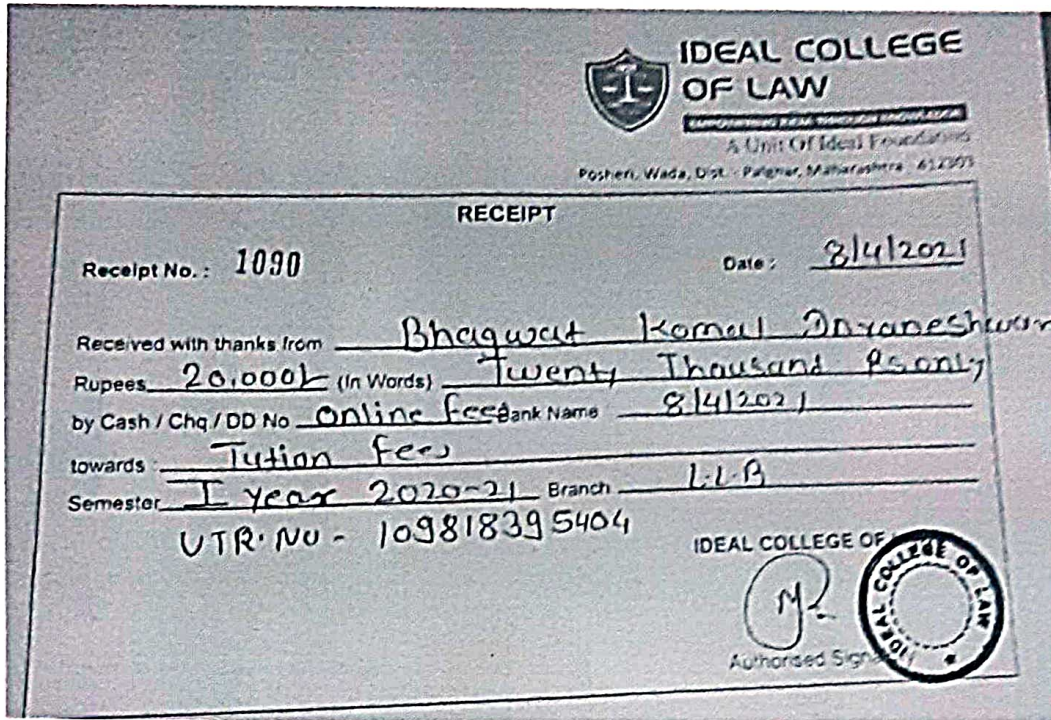 IDEAL COLLEGE
OF LAW
A Unit Of Ideal Foundation
Posheri, Wada, Dist. - Palghar, Maharashtra
RECEIPT
Receipt No. : 1090 Date : 8/4/2021
Received with thanks from Bhagwat Komal Dnyaneshwar
Rupees 20,000/- (In Words) Twenty Thousand Rs only
by Cash / Chq / DD No Online fees Bank Name 8/4/2021
towards : Tution fees
Semester I year 2020-21 Branch L.L.B
UTR. NO - 109818395404
IDEAL COLLEGE OF
Authorised
IDEAL COLLEGE OF LAW